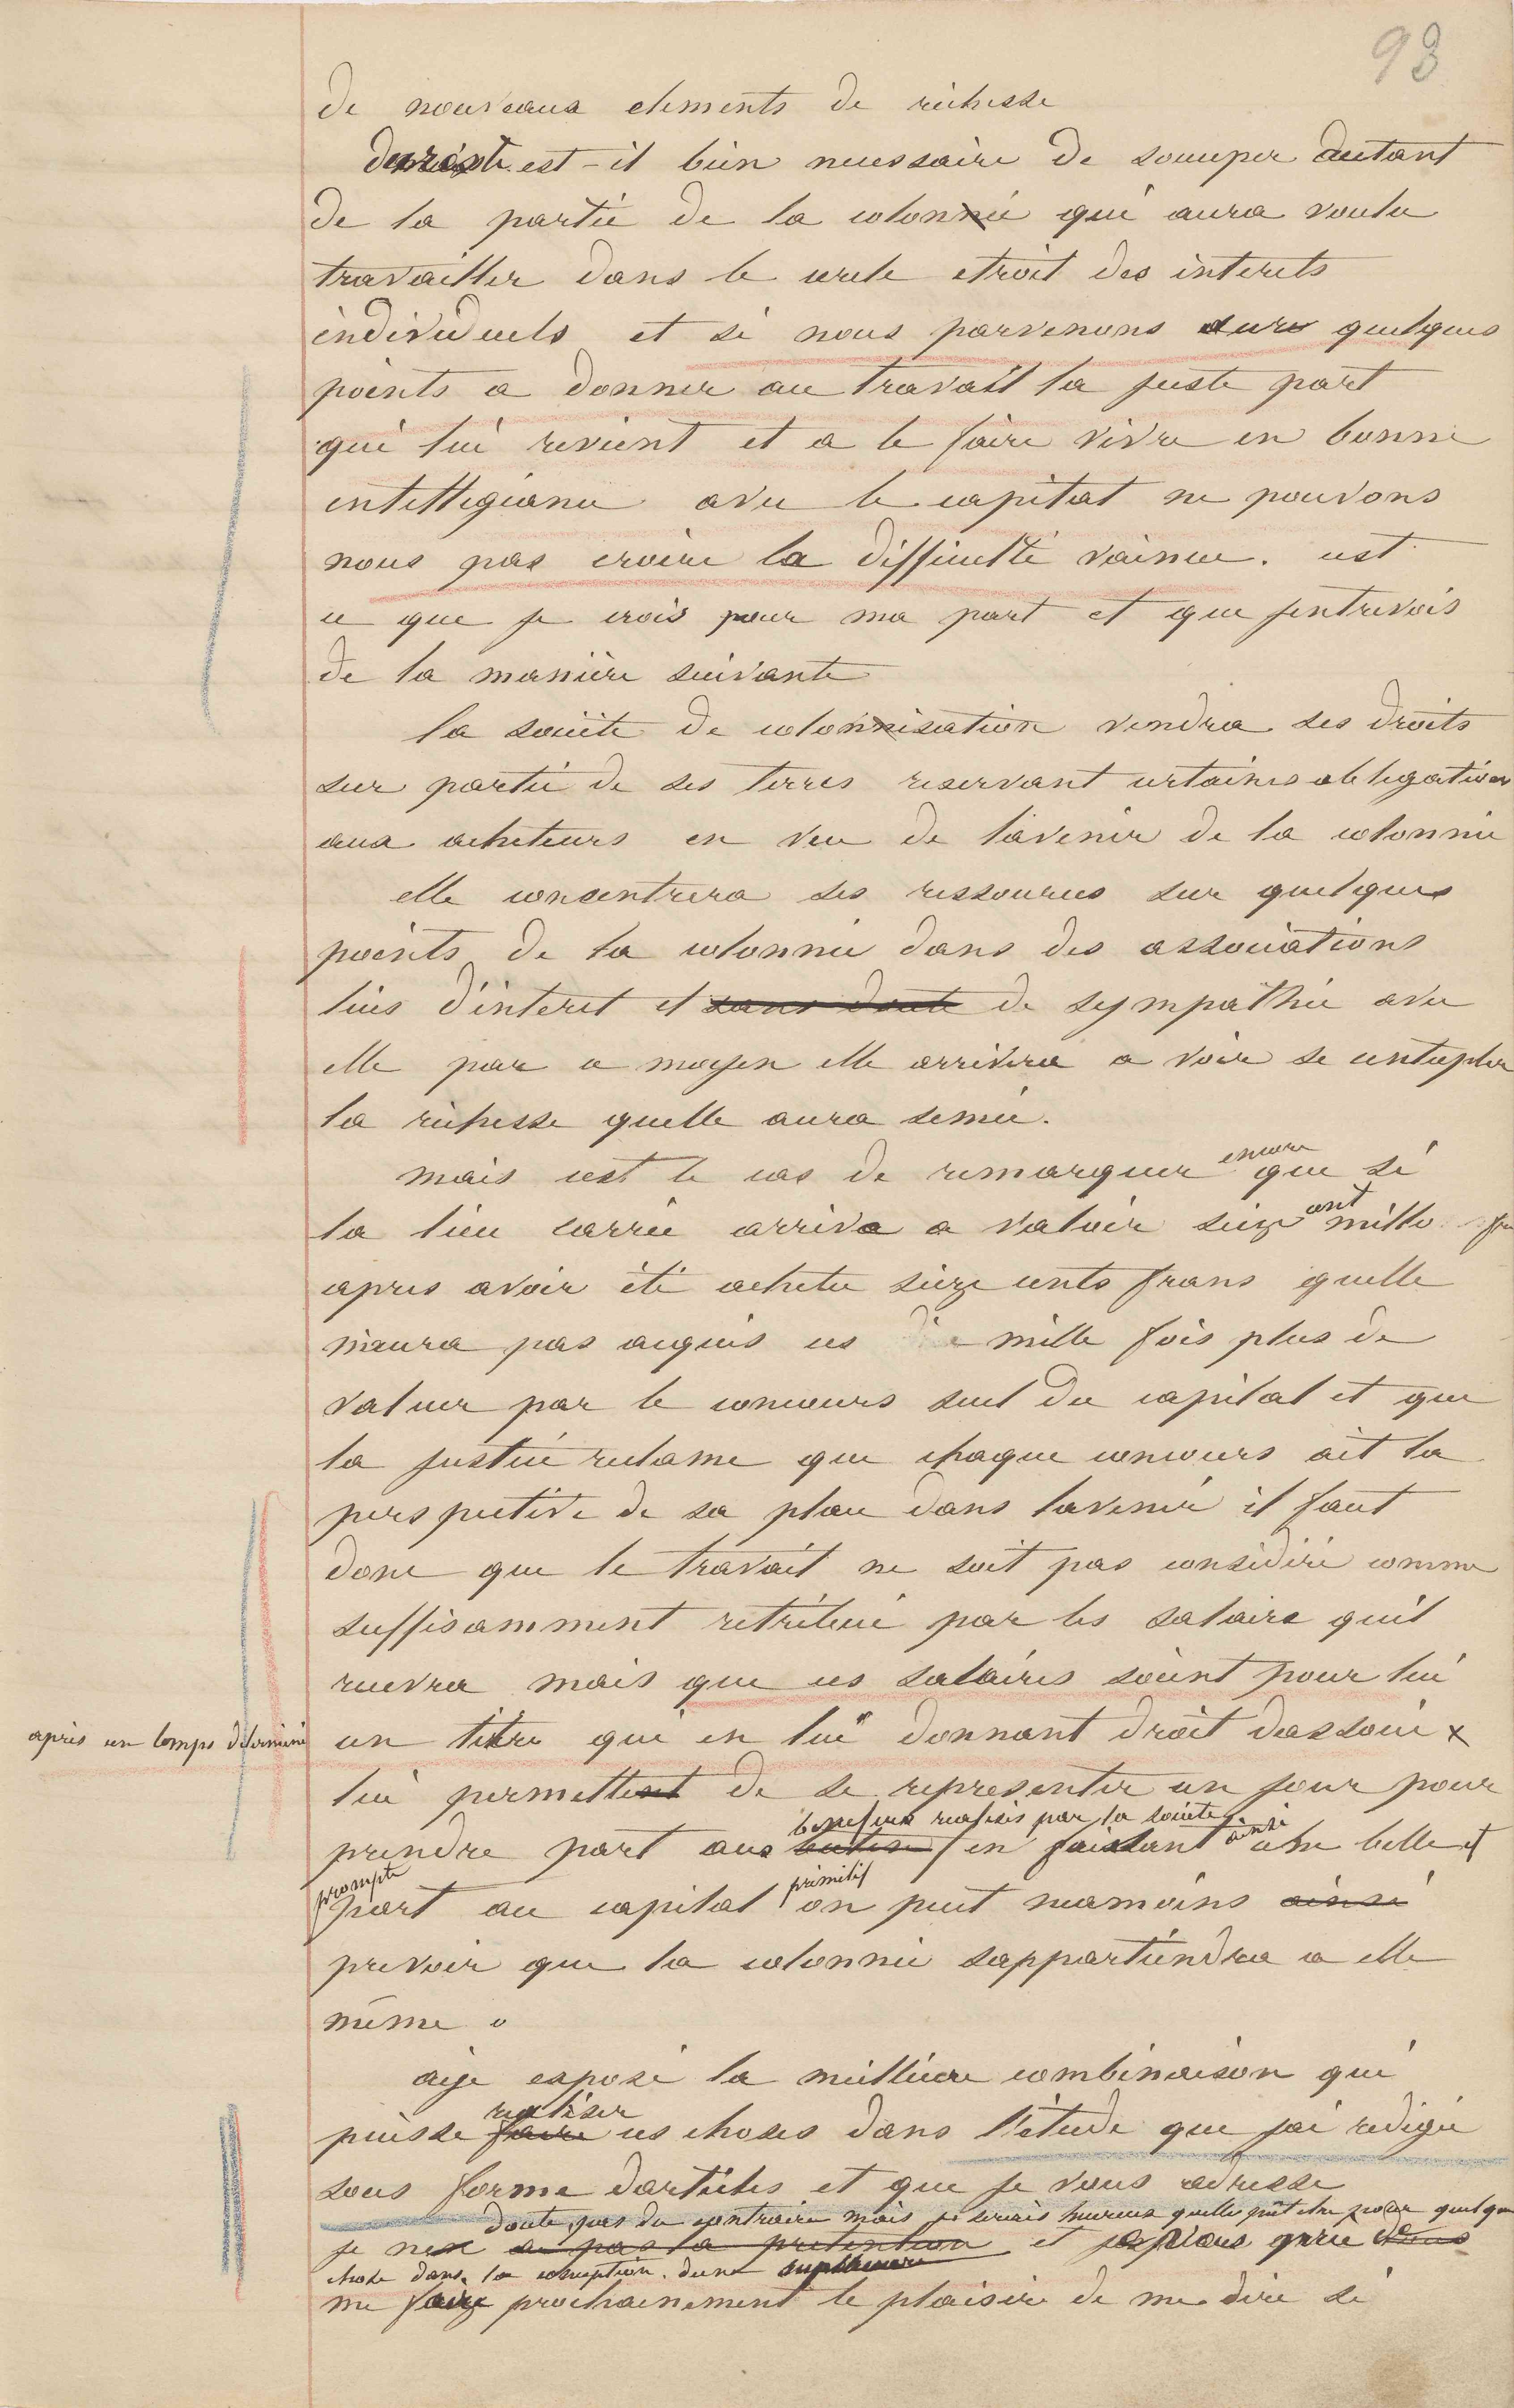 93
de nouveaux elements de richesse
du reste est-il bien necessaire de soccuper autant
de la partie de la colonnie qui aura voulu
travailler dans le cercle etroit des interets
individuels et si nous parvenons sur quelques
points a donner au travail la juste part
qui lui revient et a le faire vivre en bonne
intelligeance avec le capital ne pouvons
nous pas croire la difficulté vaincue. cest
ce que je crois pour ma part et que jentrevois
de la manière suivante
la société de colonnisation vendra ses droits
sur partie de ses terres reservant certaines obligations
aux acheteurs en vue de l'avenir de la colonnie
elle concentrera ses ressources sur quelques
points de la colonnie dans des associations
liées d'interet et sans doute de sympathie avec
elle par ce moyen elle arrivera a voir se centupler
la richesse quelle aura semée.
encore
mais cest le cas de remarquer que si
cent
la lieu carrée arrive a valoir seize mille
apres avoir été achetée seize cents frans quelle
n'aura pas acquis ces mille fois plus de
valeur par le concours seul du capital et que
la justice reclame que chaque concours ait la
perspective de sa place dans lavenir il faut
donc que le travail ne soit pas consideré comme
suffisamment retribué par les salaire quil
recevra mais que ces salaires soient pour lui
après un temps determiné
un titre qui en lui donnant droit dassocié x
lui permettent de se representer un jour pour
benefices realisés par la societe
prendre part aux en faisant ainsi une belle et
prompte primitif
part au capital on peut neamoins ainsi
prevoir que la colonnie sappartiendra a elle
même.
aije exposé la meilleure combinaison qui
realiser
puisse faire ces choses dans l'étude que jai redigée
sous forme darticles et que je vous adresse
doute pas du contraire mais je serais heureux quelle pût etre pour quelque
je nen ai pas la pretention et
chose dans la conception dune
me faire prochainement le plaisir de me dire si